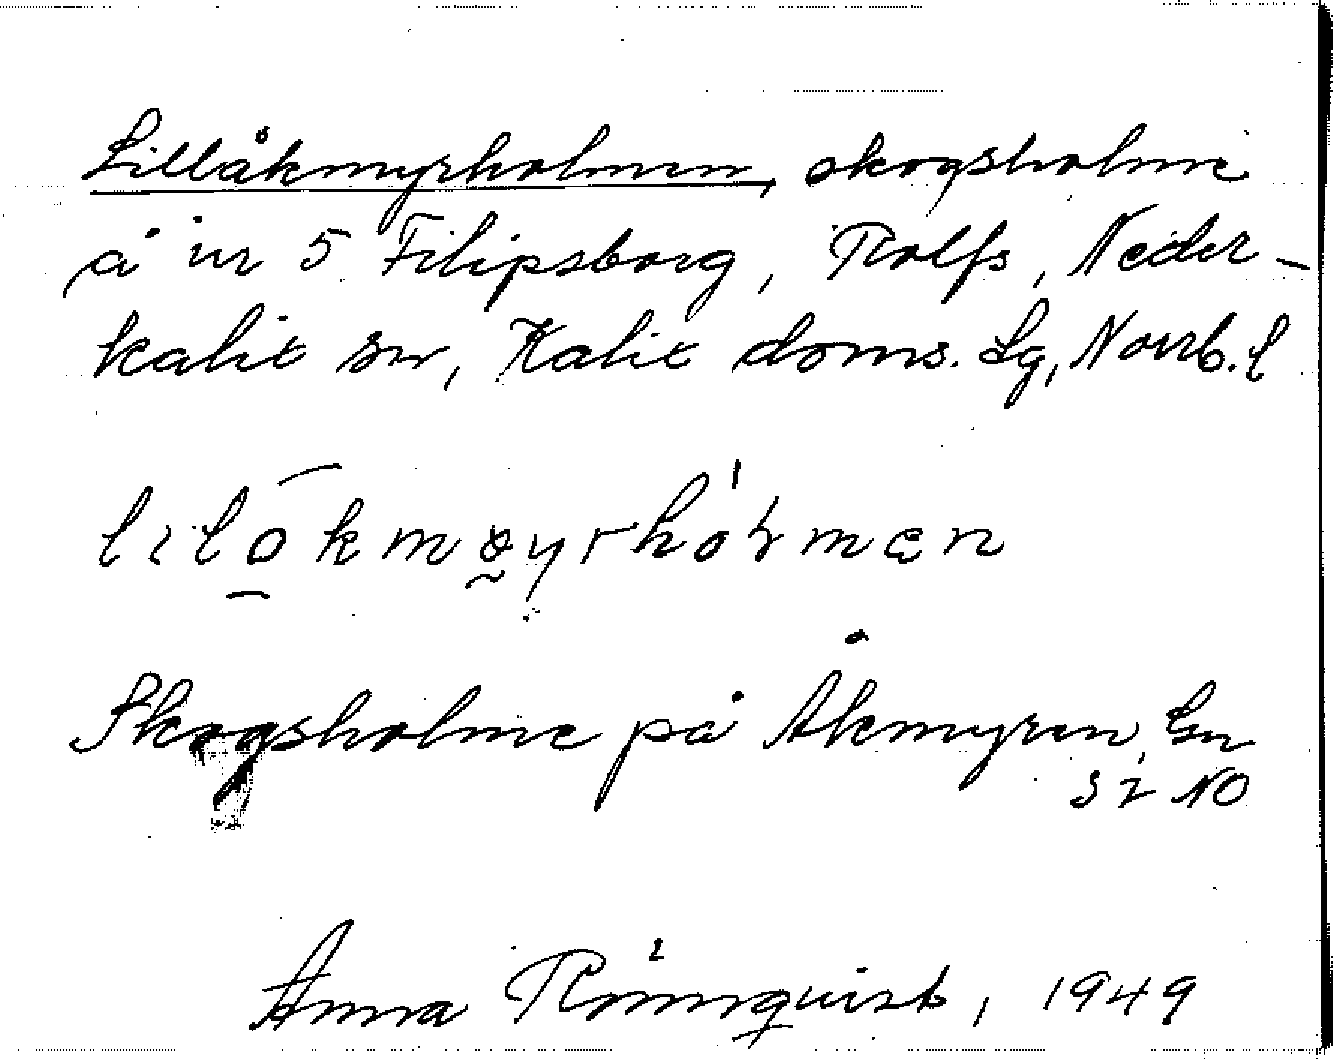 Lillåkmyrholmen, skogsholme
å nr 5 Filipsborg, Rolfs, Neder-
kalix sn, Kalix doms. lg, Norrb. l
Skogsholme på Åkmyren, Gn
32 NO
Anna Rönnquist, 1949